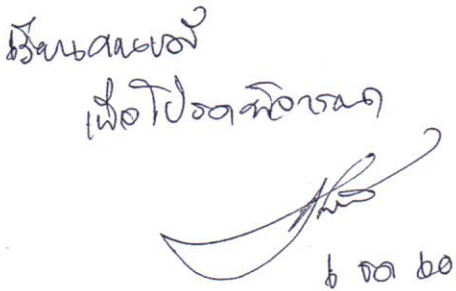 เรียนคณบดี
เพื่อโปรดพิจารณา
๖ ตค ๖๐